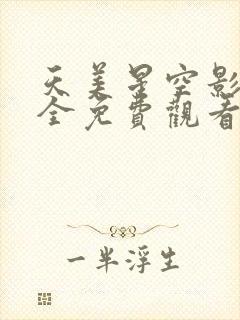 天美星空影
全免費觀看
一半浮生